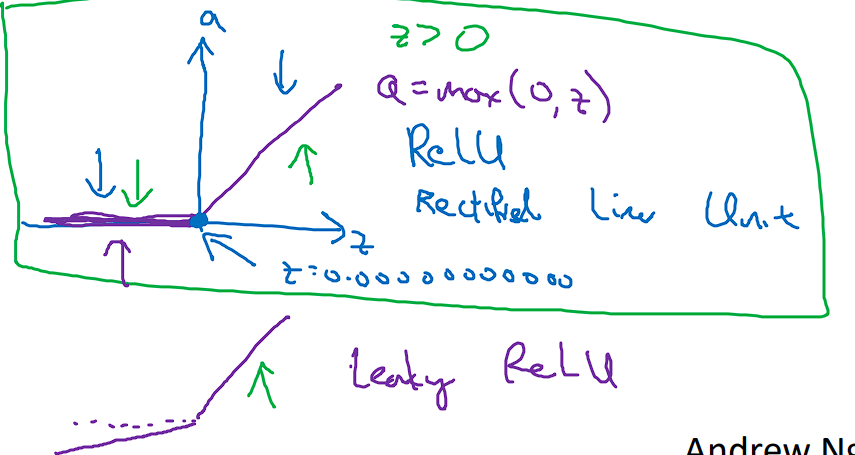 a
z > 0
a = max(0, z)
ReLU
Rectified Linear Unit
z
z = 0.000000000000
Leaky ReLU
Andrew Ng